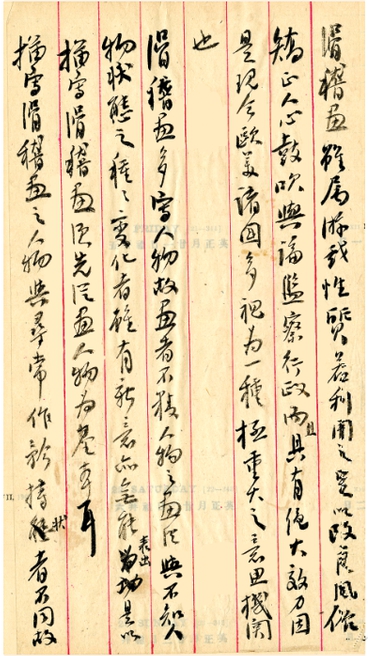 滑稽画虽属游戏性质、若利用之足以改良风俗
矫正人心鼓吹舆论监察行政而且具有绝大效力因
是现今欧美诸国多视为一种极重大之意思机关
也
滑稽画多写人物故画者不精人物之画法与不知人
物状态之种々变化者虽有新意亦无能为功表出是以
描写滑稽画须先从画人物为基本耳
描写滑稽画之人物与寻常作于状者不同故